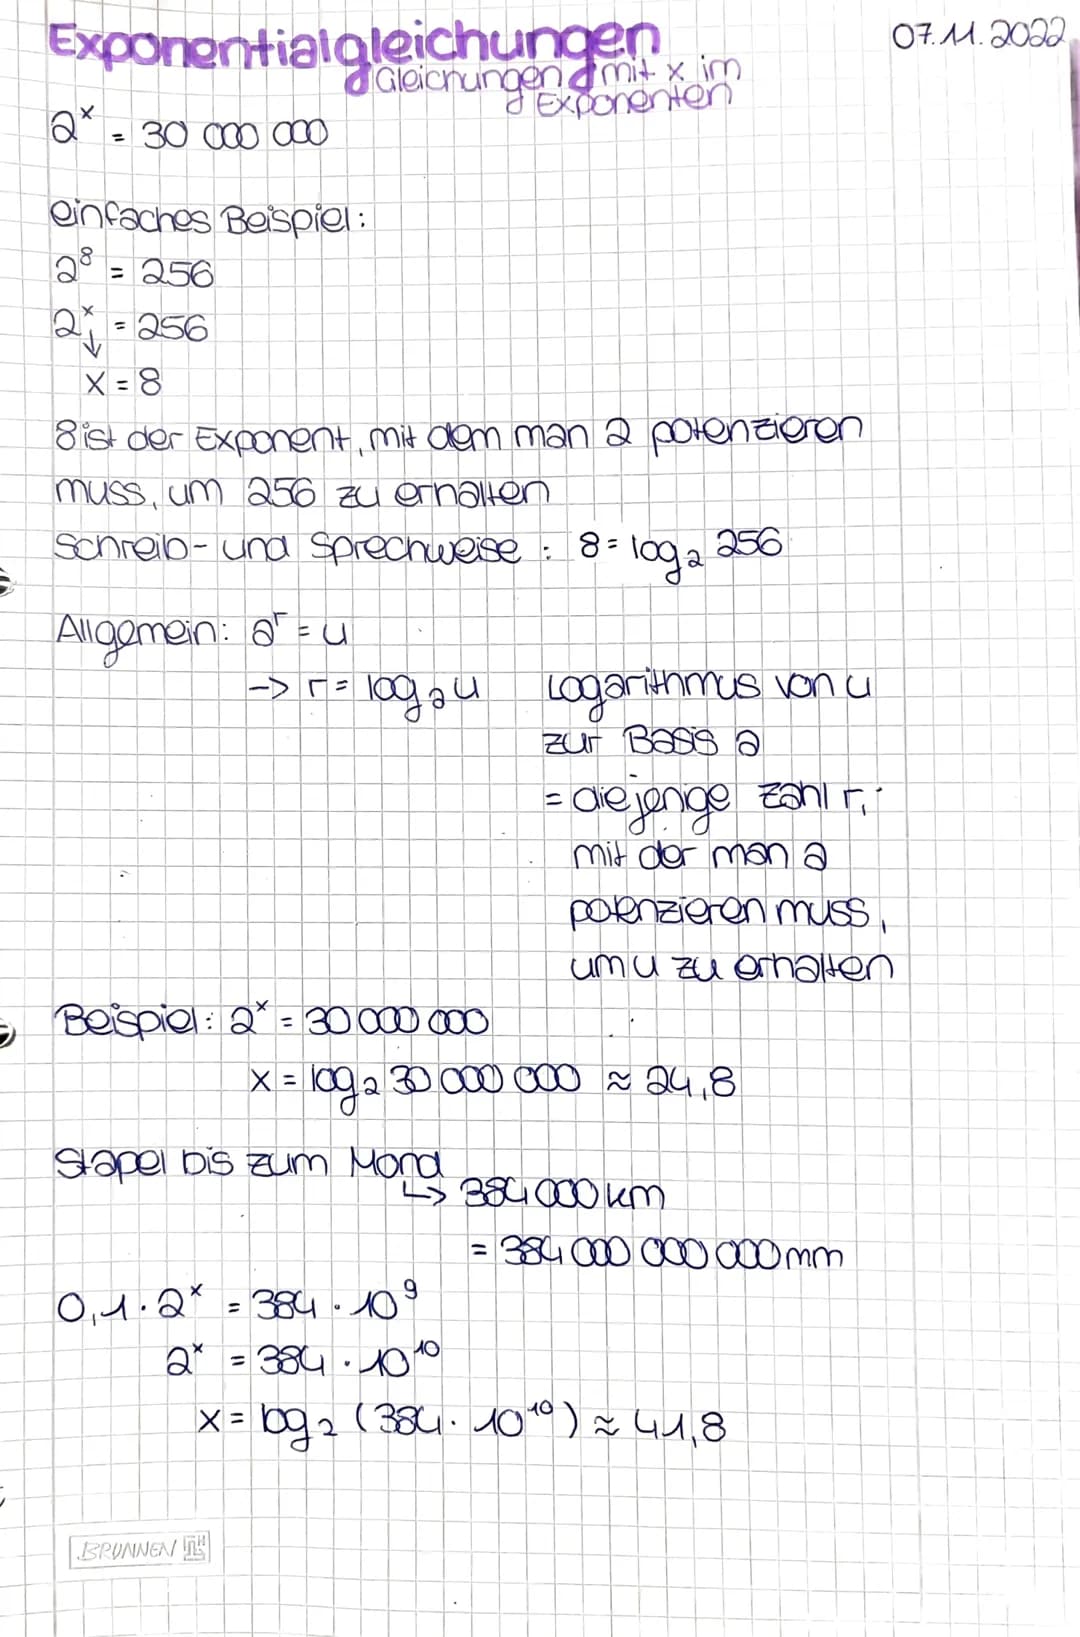 Exponentialgleichungen
07.11.2022
Gleichungen mit x im
Exponenten
2ˣ = 30 000 000
einfaches Beispiel:
2⁸ = 256
2ˣ = 256
↓
x = 8
8 ist der Exponent, mit dem man 2 potenzieren
muss, um 256 zu erhalten
Schreib- und Sprechweise : 8 = log₂ 256
Allgemein: aʳ = u
-> r = logₐ u
Logarithmus von u
zur Basis a
= diejenige Zahl r,
mit der man a
potenzieren muss,
um u zu erhalten
Beispiel: 2ˣ = 30 000 000
x = log₂ 30 000 000 ≈ 24,8
Stapel bis zum Mond
↳ 384 000 km
= 384 000 000 000 mm
0,1 · 2ˣ = 384 · 10⁹
2ˣ = 384 · 10¹⁰
x = log₂ (384 · 10¹⁰) ≈ 41,8
BRUNNEN